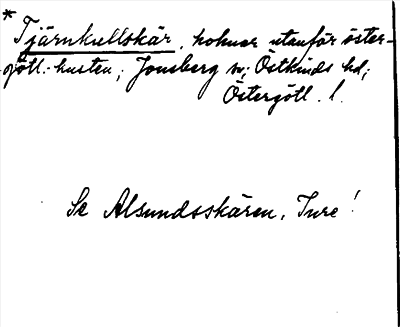 * Tjärnkullskär, holmar utanför öster-
götl.-kusten; Jonsberg sn; Östkinds hd;
Östergötl. l.
Se Alsundsskären, Ture!